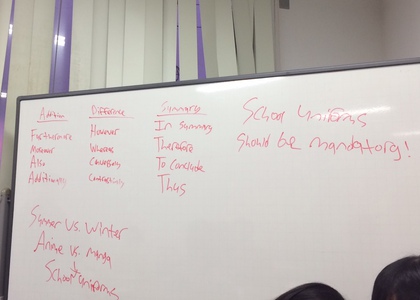 Addition Difference Summary
Furthermore However In summary
Moreover Whereas Therefore
Also Conversely To conclude
Additionally Contrastingly Thus
School Uniforms
Should be mandatory!
Summer vs. Winter
Anime vs. manga
School Uniforms